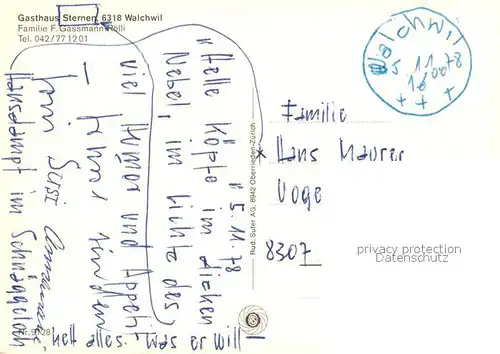 Gasthaus Sternen, 6318 Walchwil
Familie F. Gassmann-Rölli
Tel. 042/77 12 01
5. 11. 78
"Helle Köpfe im dichten
Nebel, im Lichte des,
viel Humor und Appetit,
– hier finden
hett alles, was er will –
Hansdampf im Schnäggeloch
Walchwil
5 11 78
16 00
+ + +
Familie
Hans Maurer
Voge
8307
Rud. Suter AG, 8942 Oberrieden-Zürich
Nr. 9128
privacy protection
Datenschutz